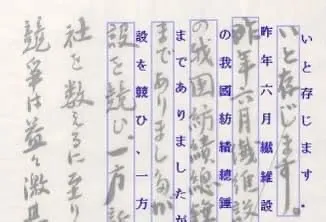 いと存じます。
いと存じます。
昨年六月繊維設
昨年六月繊維設
の我國紡績總錘
の我国紡績総錘
までありましたが
までありましたが
設を競ひ、一方
設を競ひ、一方新
社を数えるに至り
競争は益々激甚